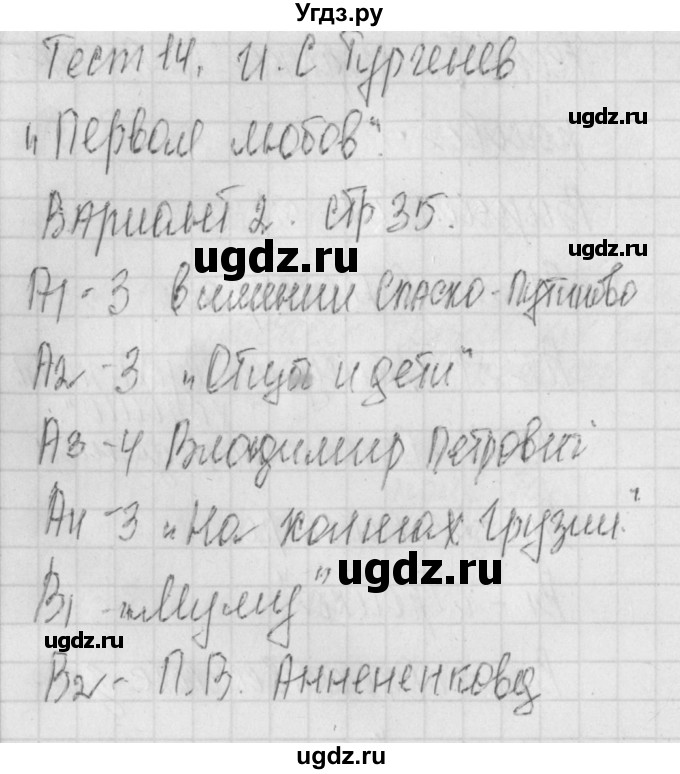 Угдз.ру
Тест 14. И. С Тургенев
ugdz.ru
„Первая любов“.
Вариант 2. стр 35.
ugdz.ru
А1 - 3 в имении Спаско-Лутиново
А2 - 3 „Отцы и дети“
А3 - 4 Владимир Петрович
А4 - 3 „На холмах Грузии“.
ugdz.ru
В1 - „Муму“
ugdz.ru
В2 - П.В. Анненкова
ugdz.ru